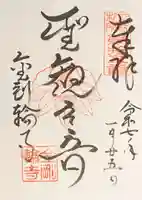 奉拝
令和七年
一月廿五日
聖観世音
金剛輪寺